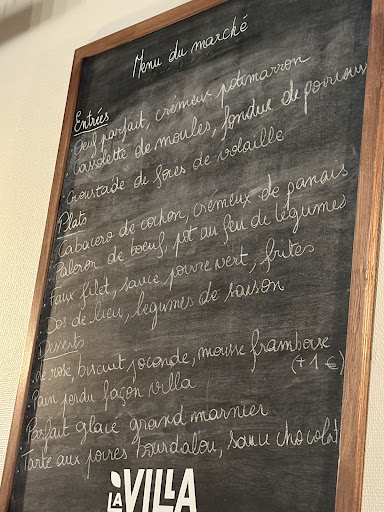 Menu du marché
Entrées
. Oeuf parfait, crémeux potimarron
. Cassolette de moules, fondue de poireaux
. Croustade de foies de volaille
Plats
. Cabacero de cochon, crémeux de panais
. Paleron de boeuf, pot au feu de légumes
. Faux filet, sauce poivre vert, frites
. Dos de lieu, légumes de saison
Desserts
. de rose, biscuit joconde, mousse framboise
(+1€)
. Pain perdu façon villa
Parfait glacé grand marnier
. Tarte aux poires bourdalou, sauce chocolat
LA VILLA